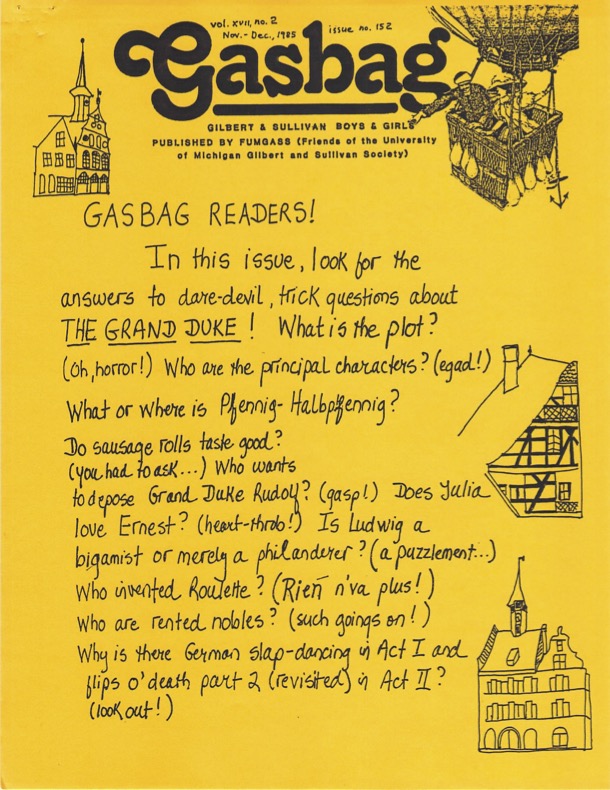 vol. XVII, no. 2
Nov.-Dec., 1985
issue no. 152
Gasbag
GILBERT & SULLIVAN BOYS & GIRLS
PUBLISHED BY FUMGASS (Friends of the University
of Michigan Gilbert and Sullivan Society)
GASBAG READERS!
In this issue, look for the
answers to dare-devil, trick questions about
THE GRAND DUKE! What is the plot?
(Oh, horror!) Who are the principal characters? (egad!)
What or where is Pfennig-Halbpfennig?
Do sausage rolls taste good?
(you had to ask...) Who wants
to depose Grand Duke Rudolf? (gasp!) Does Julia
love Ernest? (heart-throb!) Is Ludwig a
bigamist or merely a philanderer? (a puzzlement...)
Who invented Roulette? (Rien n'va plus!)
Who are rented nobles? (such goings on!)
Why is there German slap-dancing in Act I and
flips o'death part 2 (revisited) in Act II?
(look out!)